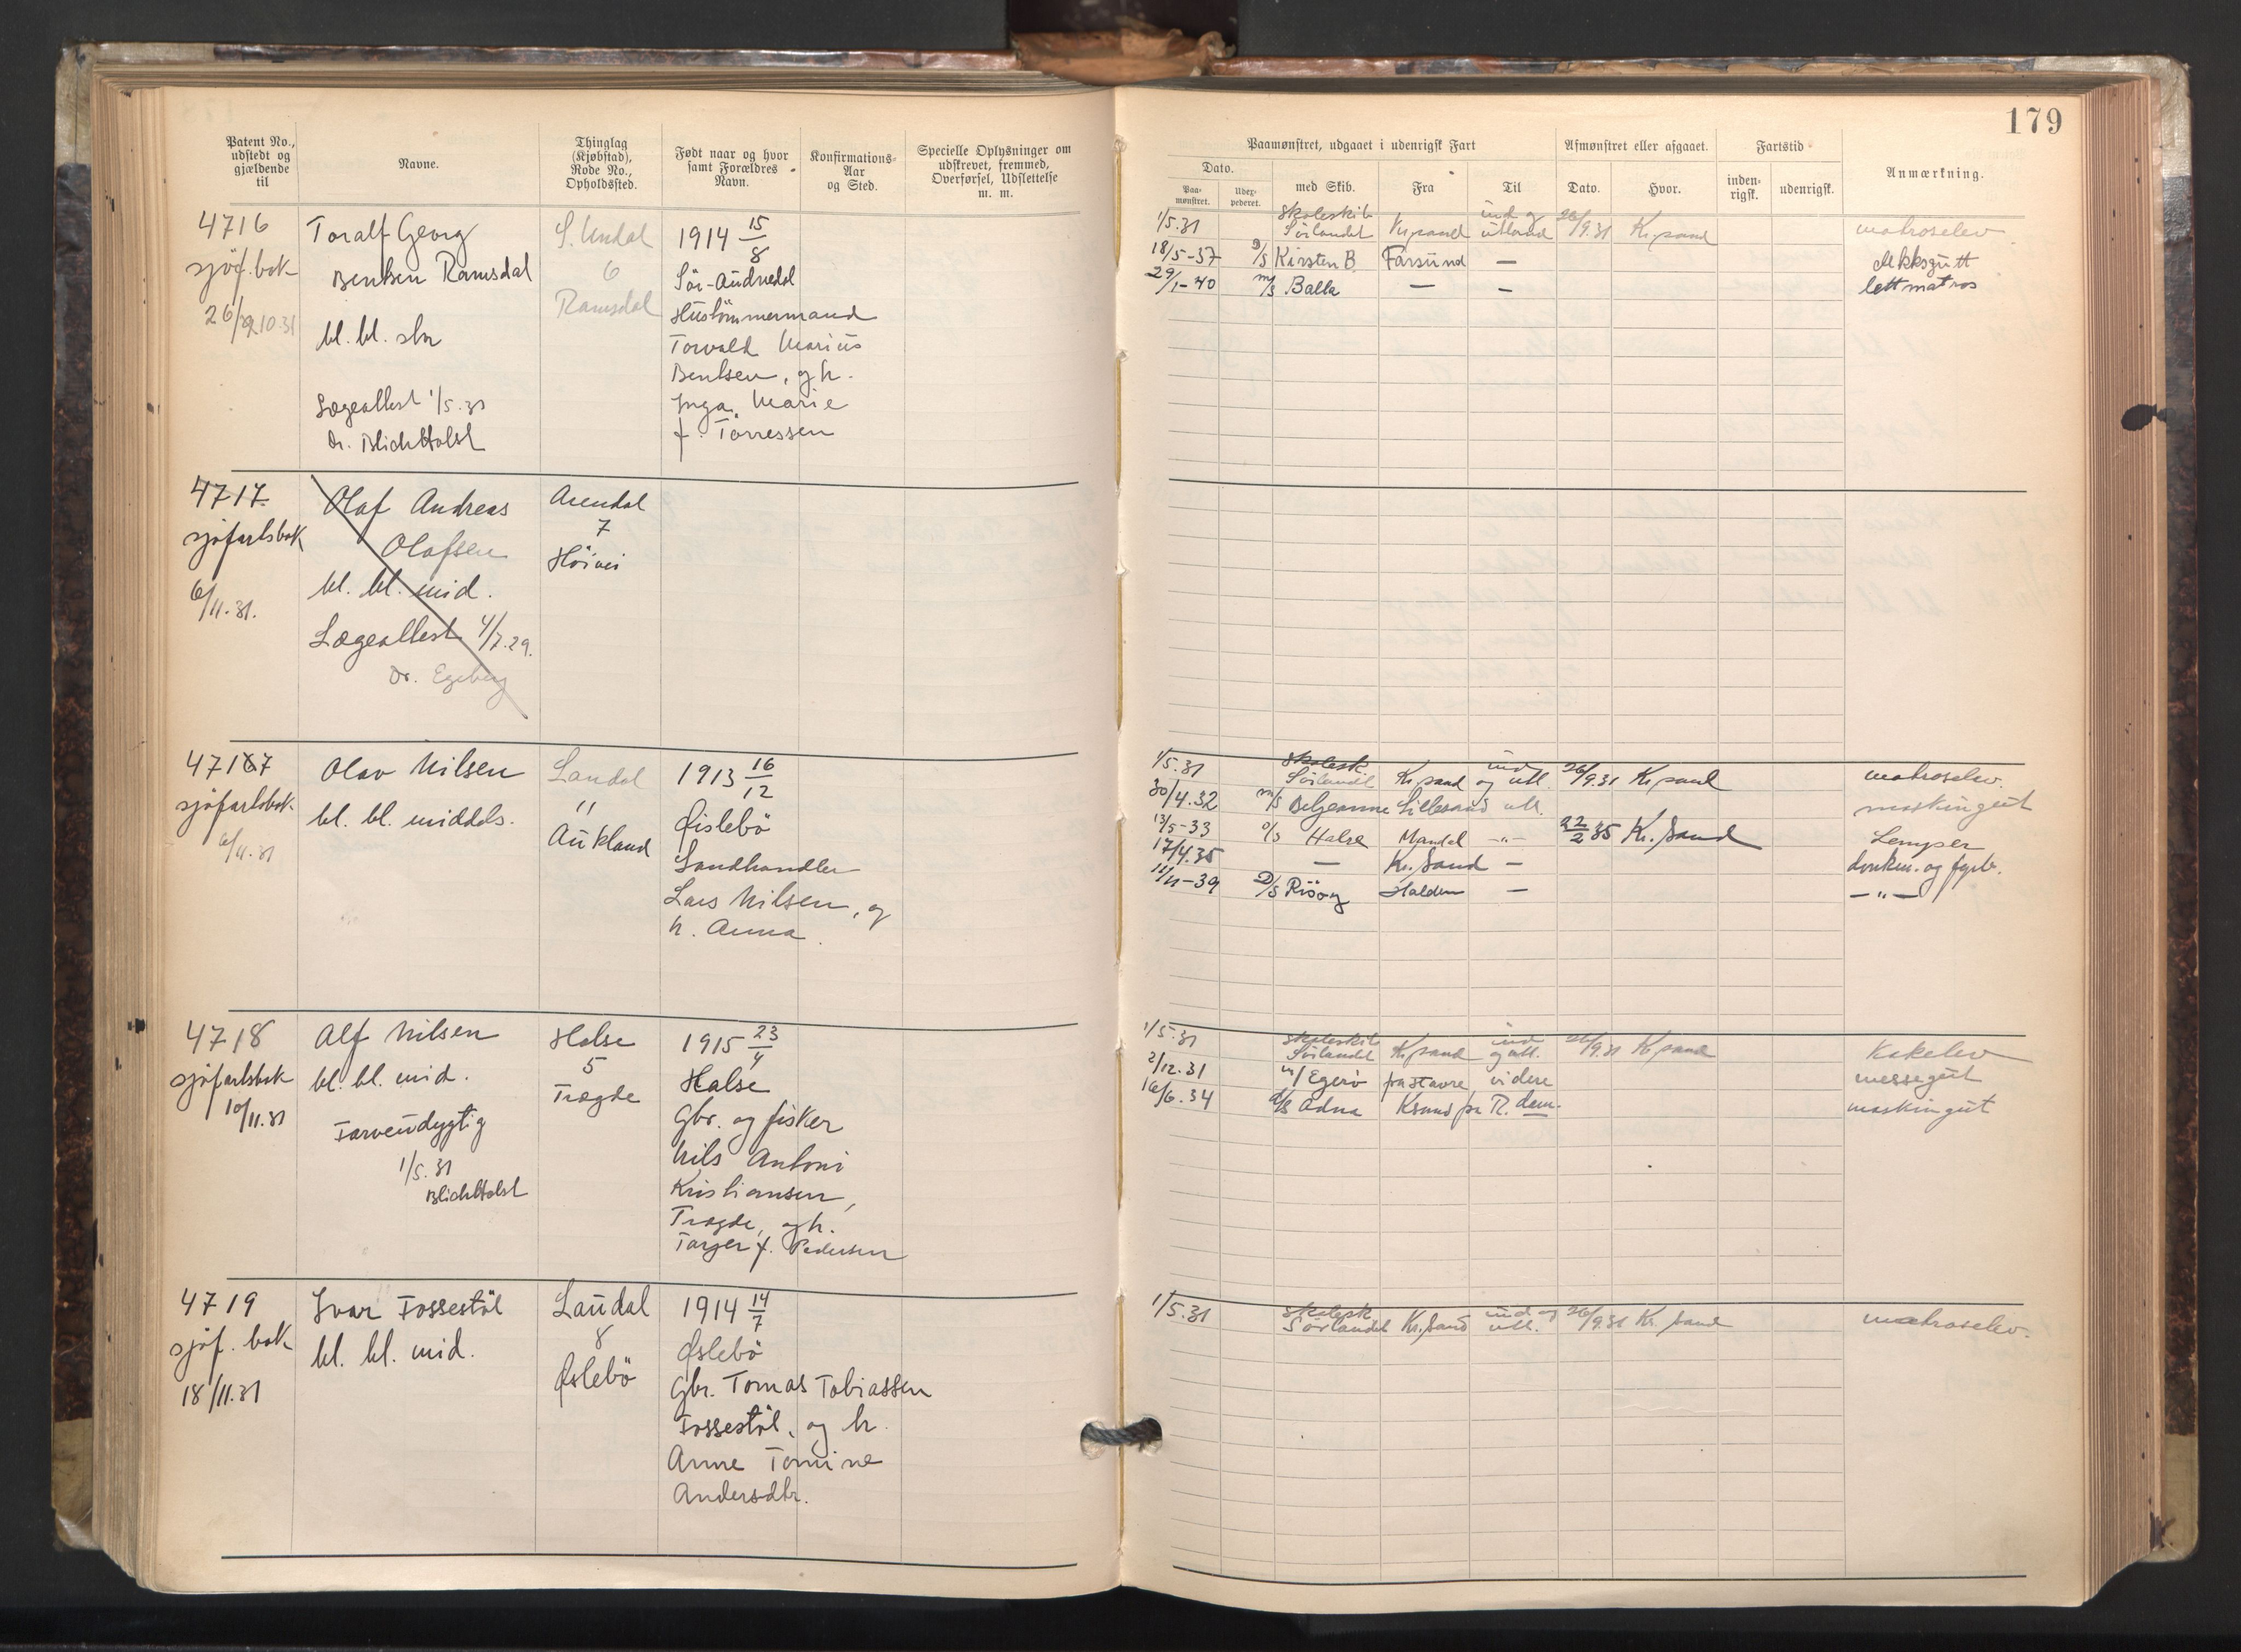 179
Patent No., udstedt og gjældende til
Navne.
Thinglag (Kjøbstad), Rode No., Opholdssted.
Født naar og hvor samt Forældres Navn.
Konfirmations-Aar og Sted.
Specielle Oplysninger om udskrevet, fremmed, Overførsel, Udslettelse m. m.
Paamønstret, udgaaet i udenrigsk Fart
Afmønstret eller afgaaet.
Fartstid
Anmærkning.
Dato.
Paa-mønstret.
med Skib.
Fra
Til
Dato.
Hvor.
inden-rigsk.
udenrigsk.
4716
sjöf. bok
Toralf Georg
Bentsen Ramsdal
bl. bl. str
Lægeattest 1/5.31
Dr. Blich Holst
S. Undal
6
Ramsdal
1914 15/8
Sör-Audnedal
Hustömmermand
Torvald Marius
Bentsen, og h.
Inga Marie
f. Törressen
1/5.31 Skoleskib Sörlandet Kr.sand ind og utland 26/9.31 Kr.sand matroselev
18/5-37 D/S Kirsten B. Farsund — dekksgutt
29/1-40 m/s Balla — — lettmatros
4717
sjöfartsbok
6/11.31.
Olaf Andreas
Olafsen
bl. bl. mid.
Lægeattest 4/7.29.
Dr. Egeberg
Arendal
7
Höivei
47167
sjöfartsbok
6/11.31
Olav Nilsen
bl. bl. middels.
Laudal
11
Aukland
1913 16/12
Øislebö
Landhandler
Lars Nilsen, og
h. Anna
1/5.31 Skolesk. Sörlandet Kr.sand ind og utl. 26/9.31 Kr.sand matroselev.
30/4.32 m/s Beljeanne Lillesand utl. maskingut
13/5-33 D/S Halse Mandal -"- 22/2 35 Kr.Sand Lemper
17/4.35 — Kr.Sand — donkm. og fyrb.
11/11-39 D/S Risøy Halden — —"—
4718
sjöfartsbok
10/11.31
Alf Nilsen
bl. bl. mid.
Farvedygtig
1/5.31
Blich Holst
Halse
5
Trægde
1915 23/4
Halse
Gbr. og fisker
Nils Antoni
Kristiansen,
Trægde, og h.
Torger f. Pedersen
1/5.31 Skoleskib Sörlandet Kr.sand ind og utl. 26/9.31 Kr.sand Kokelev
2/12.31 Egerö videre messegut
16/6.34 d/s Edna Krsand pr R. dam. maskingut
4719
sjöf. bok
18/11.31
Ivar Fossestöl
bl. bl. mid.
Laudal
8
Øslebö
1914 14/7
Øslebö
Gbr. Tomas Tobiassen
Fossestöl, og h.
Anne Tomine
Andersdtr.
1/5.31 Skolesk Sörlandet Kr.sand ind og utl. 26/9.31 Kr.sand matroselev.